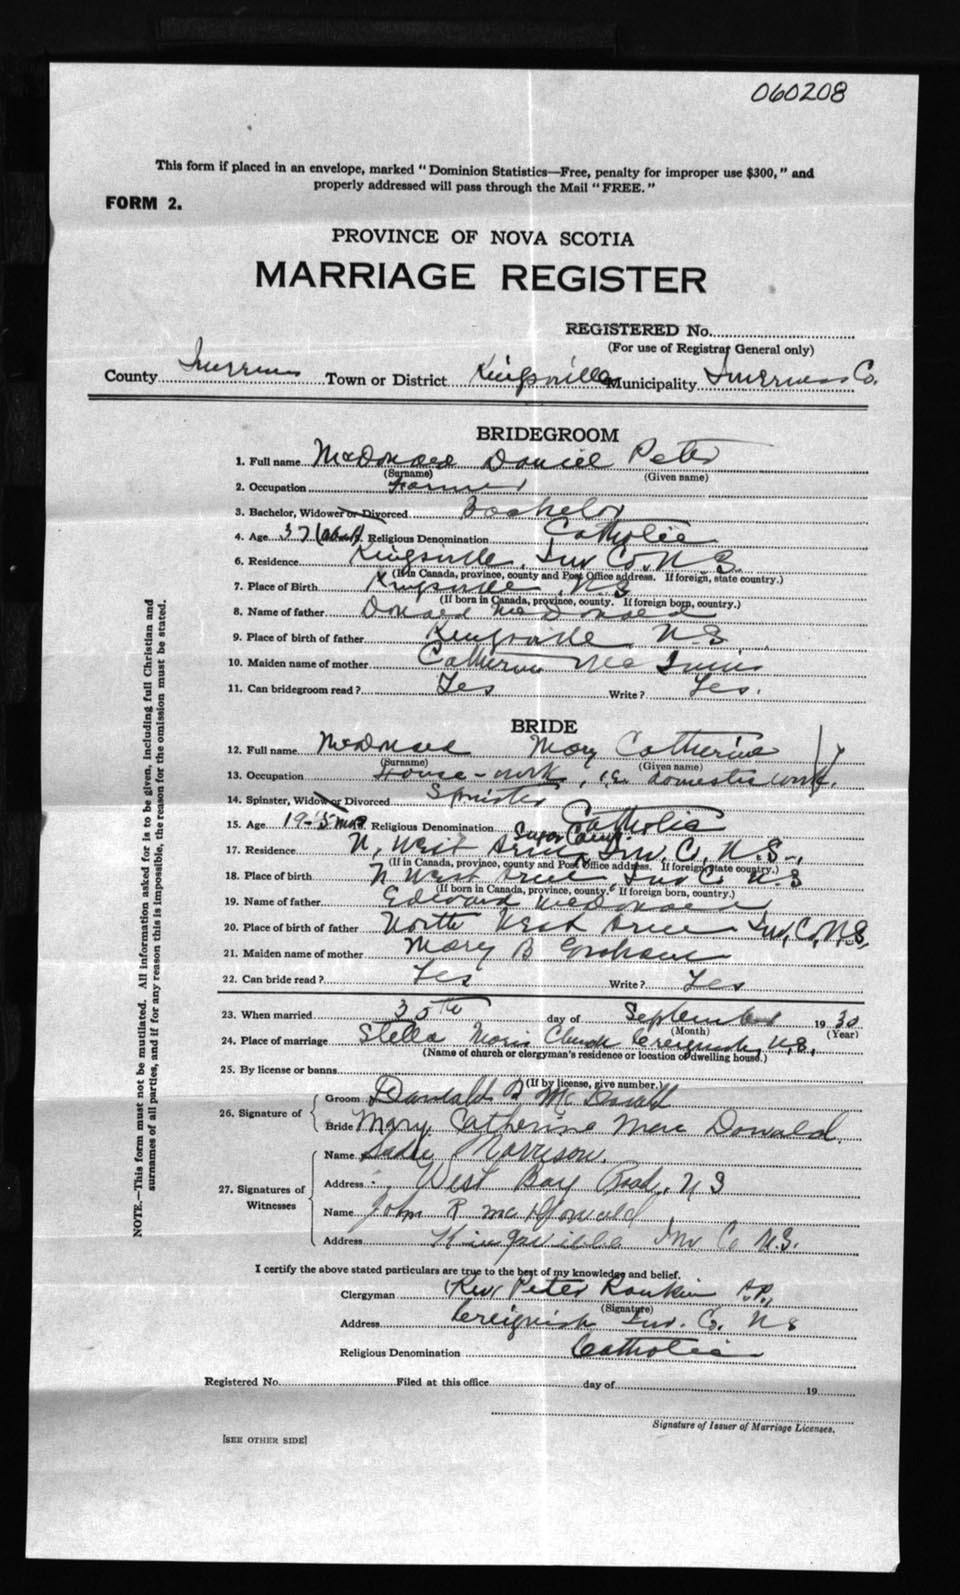 060208
This form if placed in an envelope, marked "Dominion Statistics—Free, penalty for improper use $300," and
properly addressed will pass through the Mail "FREE."
FORM 2.
PROVINCE OF NOVA SCOTIA
MARRIAGE REGISTER
REGISTERED No.
(For use of Registrar General only)
County Inverness Town or District Kingsville Municipality Inverness Co.
BRIDEGROOM
1. Full name McDonald Daniel Peter
(Surname) (Given name)
2. Occupation Farmer
3. Bachelor, Widower or Divorced Bachelor
4. Age 37 (about) Religious Denomination Catholic
6. Residence Kingsville, Inv Co. N.S.
(If in Canada, province, county and Post Office address. If foreign, state country.)
7. Place of Birth Kingsville, N.S
(If born in Canada, province, county. If foreign born, country.)
8. Name of father Donald McDonald
9. Place of birth of father Kingsville, N.S
10. Maiden name of mother Catherine McInnis
11. Can bridegroom read? Yes Write? Yes.
BRIDE
12. Full name McDonald Mary Catherine
(Surname) (Given name)
13. Occupation House-work, i.e. domestic work.
14. Spinster, Widow or Divorced Spinster
15. Age 19-5 mos Religious Denomination Catholic
17. Residence N. West Arm, Sugar Camp Inv. C, N.S.,
(If in Canada, province, county and Post Office address. If foreign, state country.)
18. Place of birth N West Arm, Inv C. N.S
(If born in Canada, province, county. If foreign born, country.)
19. Name of father Edward McDonald
20. Place of birth of father North West Arm Inv. Co. N.S.
21. Maiden name of mother Mary B Graham
22. Can bride read? Yes Write? Yes
23. When married 30th day of September 19 30
(Month) (Year)
24. Place of marriage Stella Maris Church Creignish, N.S.,
(Name of church or clergyman's residence or location of dwelling house.)
25. By license or banns
(If by license, give number.)
26. Signature of Groom Donald P McDonald
Bride Mary Catherine Mac Donald
27. Signatures of Witnesses Name Sadie Morrison.
Address West Bay Road, N S
Name John R McDonald
Address Kingsville Inv Co N.S.
I certify the above stated particulars are true to the best of my knowledge and belief.
Clergyman Rev Peter Rankin P.P.
(Signature)
Address Creignish Inv. Co. N S
Religious Denomination Catholic
Registered No. Filed at this office day of 19
Signature of Issuer of Marriage Licenses.
[SEE OTHER SIDE]
NOTE.—This form must not be mutilated. All information asked for is to be given, including full Christian and
surnames of all parties, and if for any reason this is impossible, the reason for the omission must be stated.